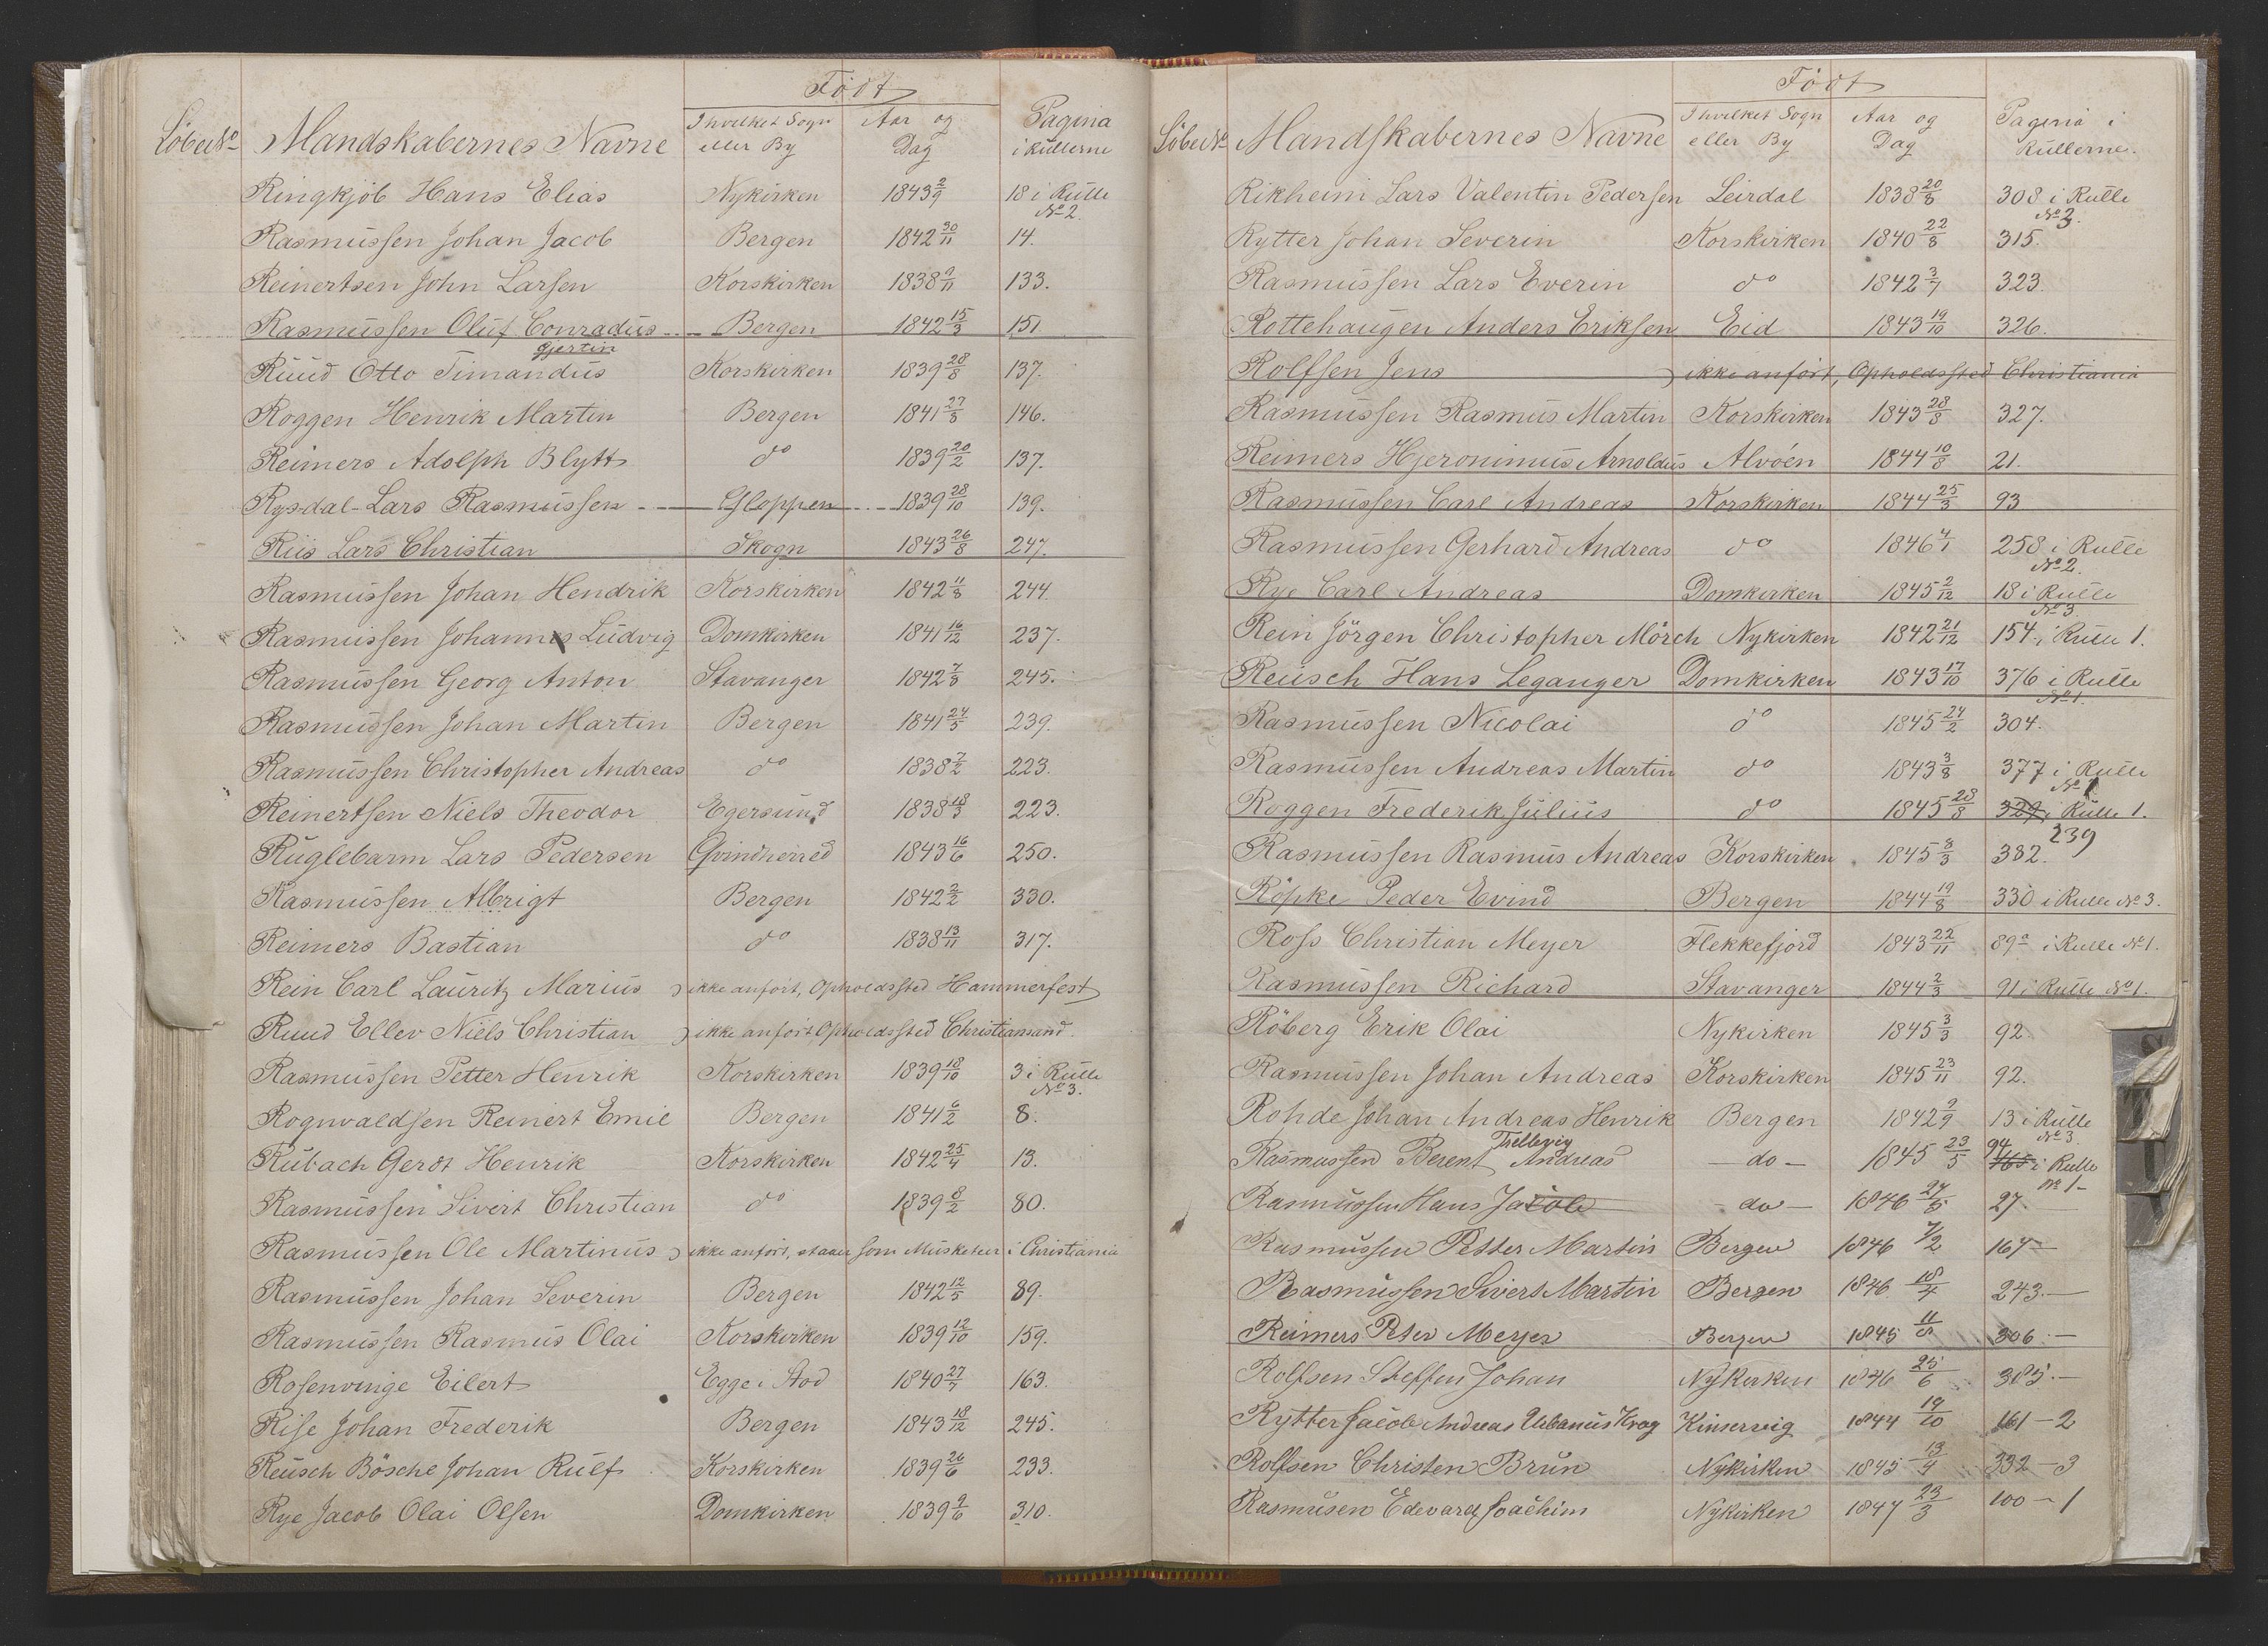 Födt
LöbeNo Mandskabernes Navne I hvilket Sogn eller By Aar og Dag Pagina i Rullerne
Ringkjöb Hans Elias Nykirken 1843 2/9 18 i Rulle No 2.
Rasmussen Johan Jacob Bergen 1842 30/11 14.
Reinertsen John Larsen Korskirken 1838 9/11 133.
Rasmussen Oluf Conradus Bergen 1842 15/3 151
Gjertin
Ruud Otto Timandus Korskirken 1839 28/8 137.
Roggen Henrik Martin Bergen 1841 27/8 146.
Reimers Adolph Blytt do 1839 20/2 137.
Rysdal Lars Rasmussen Gloppen 1839 28/10 139.
Riis Lars Christian Skogn 1843 26/8 247.
Rasmussen Johan Hendrik Korskirken 1842 11/8 244.
Rasmussen Johannes Ludvig Domkirken 1841 16/12 237.
Rasmussen Georg Anton Stavanger 1842 7/8 245.
Rasmussen Johan Martin Bergen 1841 24/5 239.
Rasmussen Christopher Andreas do 1838 7/2 223.
Reinertsen Niels Theodor Egersund 1838 18/3 223.
Ruglebarm Lars Pedersen Qvindherred 1843 16/6 250.
Rasmussen Albrigt Bergen 1842 2/2 330.
Reimers Bastian do 1838 13/11 317.
Rein Carl Lauritz Marius ikke anfört, Opholdssted Hammerfest
Ruud Ellev Niels Christian ikke anfört Opholdssted Christiansand.
Rasmussen Petter Henrik Korskirken 1839 18/10 3 i Rulle No 3.
Rognvaldsen Reinert Emil Bergen 1841 6/2 8.
Rubach Gerdt Henrik Korskirken 1842 25/4 13.
Rasmussen Sivert Christian do 1839 8/2 80.
Rasmussen Ole Martinus ikke anfört, staaer som Musketeer i Christiania
Rasmussen Johan Severin Bergen 1842 12/5 89.
Rasmussen Rasmus Olai Korskirken 1839 12/10 159.
Rosenvinge Eilert Egge i Stod 1840 27/7 163.
Rise Johan Frederik Bergen 1843 18/12 245.
Reusch Bösche Johan Rulf Korskirken 1839 26/6 233.
Rye Jacob Olai Olsen Domkirken 1839 9/6 310.
Födt
LöbeNo Mandskabernes Navne I hvilket Sogn eller By Aar og Dag Pagina i Rullerne.
Rikheim Lars Valentin Pedersen Leirdal 1838 20/8 308 i Rulle No 3.
Rytter Johan Severin Korskirken 1840 22/8 315.
Rasmussen Lars Everin do 1842 3/7 323.
Rottehaugen Anders Eriksen Eid 1843 19/10 326.
Rolfsen Jens ikke anfört, Opholdssted Christiania
Rasmussen Rasmus Martin Korskirken 1843 28/8 327.
Reimers Hjeronimus Arnoldus Alvöen 1844 10/8 21.
Rasmussen Carl Andreas Korskirken 1844 25/3 93
Rasmussen Gerhard Andreas do 1846 4/1 258 i Rulle No 2.
Rye Carl Andreas Domkirken 1845 2/12 18 i Rulle No 3
Rein Jörgen Christopher Mörch Nykirken 1842 21/12 154 i Rulle 1.
Reusch Hans Leganger Domkirken 1843 17/10 376 i Rulle No 1.
Rasmussen Nicolai do 1845 24/2 304.
Rasmussen Andreas Martin do 1843 3/8 377 i Rulle No 1
Roggen Frederik Julius do 1845 28/8 329 i Rulle 1.
239
Rasmussen Rasmus Andreas Korskirken 1845 8/3 382.
Röpke Peder Evind Bergen 1844 19/8 330 i Rulle No 3.
Ross Christian Meyer Flekkefjord 1843 22/11 89a i Rulle No 1.
Rasmussen Richard Stavanger 1844 2/3 91 i Rulle No 1.
Röberg Erik Olai Nykirken 1845 3/3 92
Rasmussen Johan Andreas Korskirken 1845 23/11 92.
Rohde Johan Andreas Henrik Bergen 1842 9/9 13 i Rulle No 3.
Tellevig
Rasmussen Berent Andreas do 1845 23/5 94 i Rulle No 1
Rasmussen Hans Jacob do 1846 27. —
Rasmussen Petter Martin Bergen 1846 7/2 164 —
Rasmussen Sivert Martin Bergen 1846 18/4 243. —
Reimers Peter Meyer Bergen 1845 306. —
Rolfsen Steffen Johan Nykirken 1846 25/6 385. —
Rytter Jacob Andreas Urbanus Krog Kinservig 1844 19/10 161 — 2
Rolfsen Christen Brun Nykirken 1845 13/4 332 — 3
Rasmusen Edevard Joachim Nykirken 1847 23/3 100 — 1